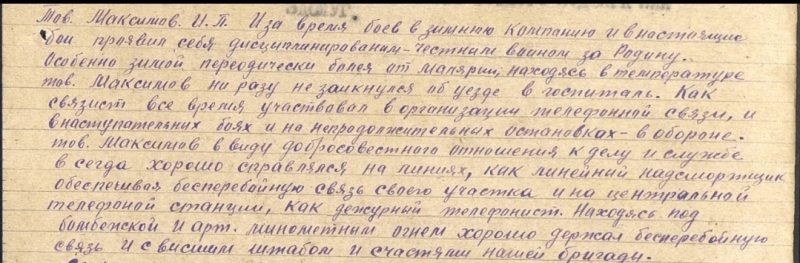 Тов. Максимов. И.П. И за время боев в зимнюю компанию и в настоящие
бои проявил себя дисциплинированым-честным воином за Родину.
Особенно зимой переодически болея от малярии, находясь в температуре
тов. Максимов ни разу не заикнулся об уезде в госпиталь. Как
связист все время участвовал в организации телефонной связи, и
в наступательных боях и на непродолжительных остановках- в обороне.
тов. Максимов в виду добросовестного отношения к делу и службе
в сегда хорошо справлялся на линиях, как линейный надсмортщик
обеспешивая бесперебойную связь своего участка и на центральной
телефоной станции, как дежурный телефонист. Находясь под
бомбежкой и арт. минометным огнем хорошо держал бесперебойную
связь и с висшим штабом и счастями нашей бригады.